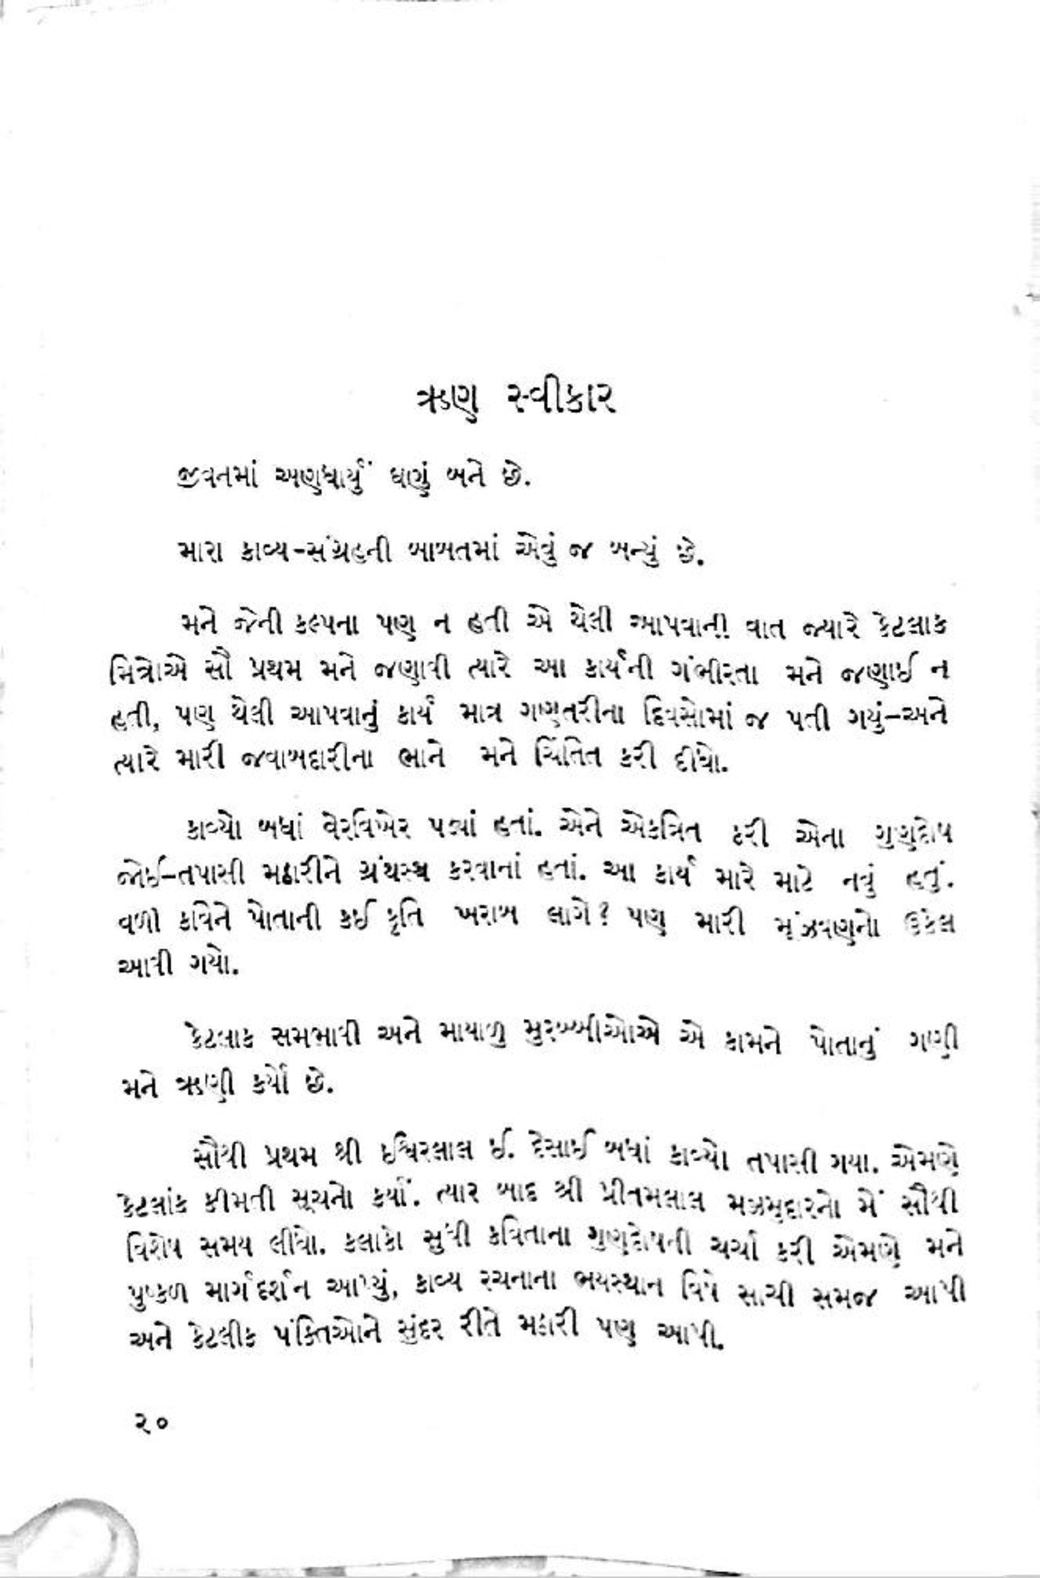 ઋણ સ્વીકાર
જીવતમાં અણધાર્યું ઘણું બને છે.
મારા કાવ્ય-સંગ્રહની બાબતમાં એવું જ બન્યું છે.
મને જેની કલ્પના પણ ન હતી એ થેલી આપવાની વાત જ્યારે કેટલાક
મિત્રોએ સૌ પ્રથમ મને જણાવી ત્યારે આ કાર્યની ગંભીરતા મને જણાઈ ન
હતી, પણ થેલી આપવાનું કાર્ય માત્ર ગણતરીના દિવસોમાં જ પતી ગયું-અને
ત્યારે મારી જવાબદારીના ભાને મને ચિંતિત કરી દીધો.
કાવ્યો બધાં વેરવિખેર પડ્યાં હતાં. એને એકત્રિત કરી એના ગુણદોષ
જોઈ-તપાસી મઠારીને ગ્રંથસ્થ કરવાનાં હતાં. આ કાર્ય મારે માટે નવું હતું.
વળી કવિને પોતાની કઈ કૃતિ ખરાબ લાગે? પણ મારી મૂંઝવણનો ઉકેલ
આવી ગયો.
કેટલાક સમભાવી અને માયાળુ મુરબ્બીઓએ એ કામને પોતાનું ગણી
મને ઋણી કર્યો છે.
સૌથી પ્રથમ શ્રી ઇશ્વિરલાલ ઈ. દેસાઈ બધાં કાવ્યો તપાસી ગયા. એમણે
કેટલાંક કીમતી સૂચનો કર્યાં. ત્યાર બાદ શ્રી પ્રીતમલાલ મઝમુદારનો મેં સૌથી
વિશેષ સમય લીધો. કલાકો સુધી કવિતાના ગુણદોષની ચર્ચા કરી એમણે મને
પુષ્કળ માર્ગદર્શન આપ્યું, કાવ્ય રચનાના ભયસ્થાન વિષે સાચી સમજ આપી
અને કેટલીક પંક્તિઓને સુંદર રીતે મઠારી પણ આપી.
૨૦